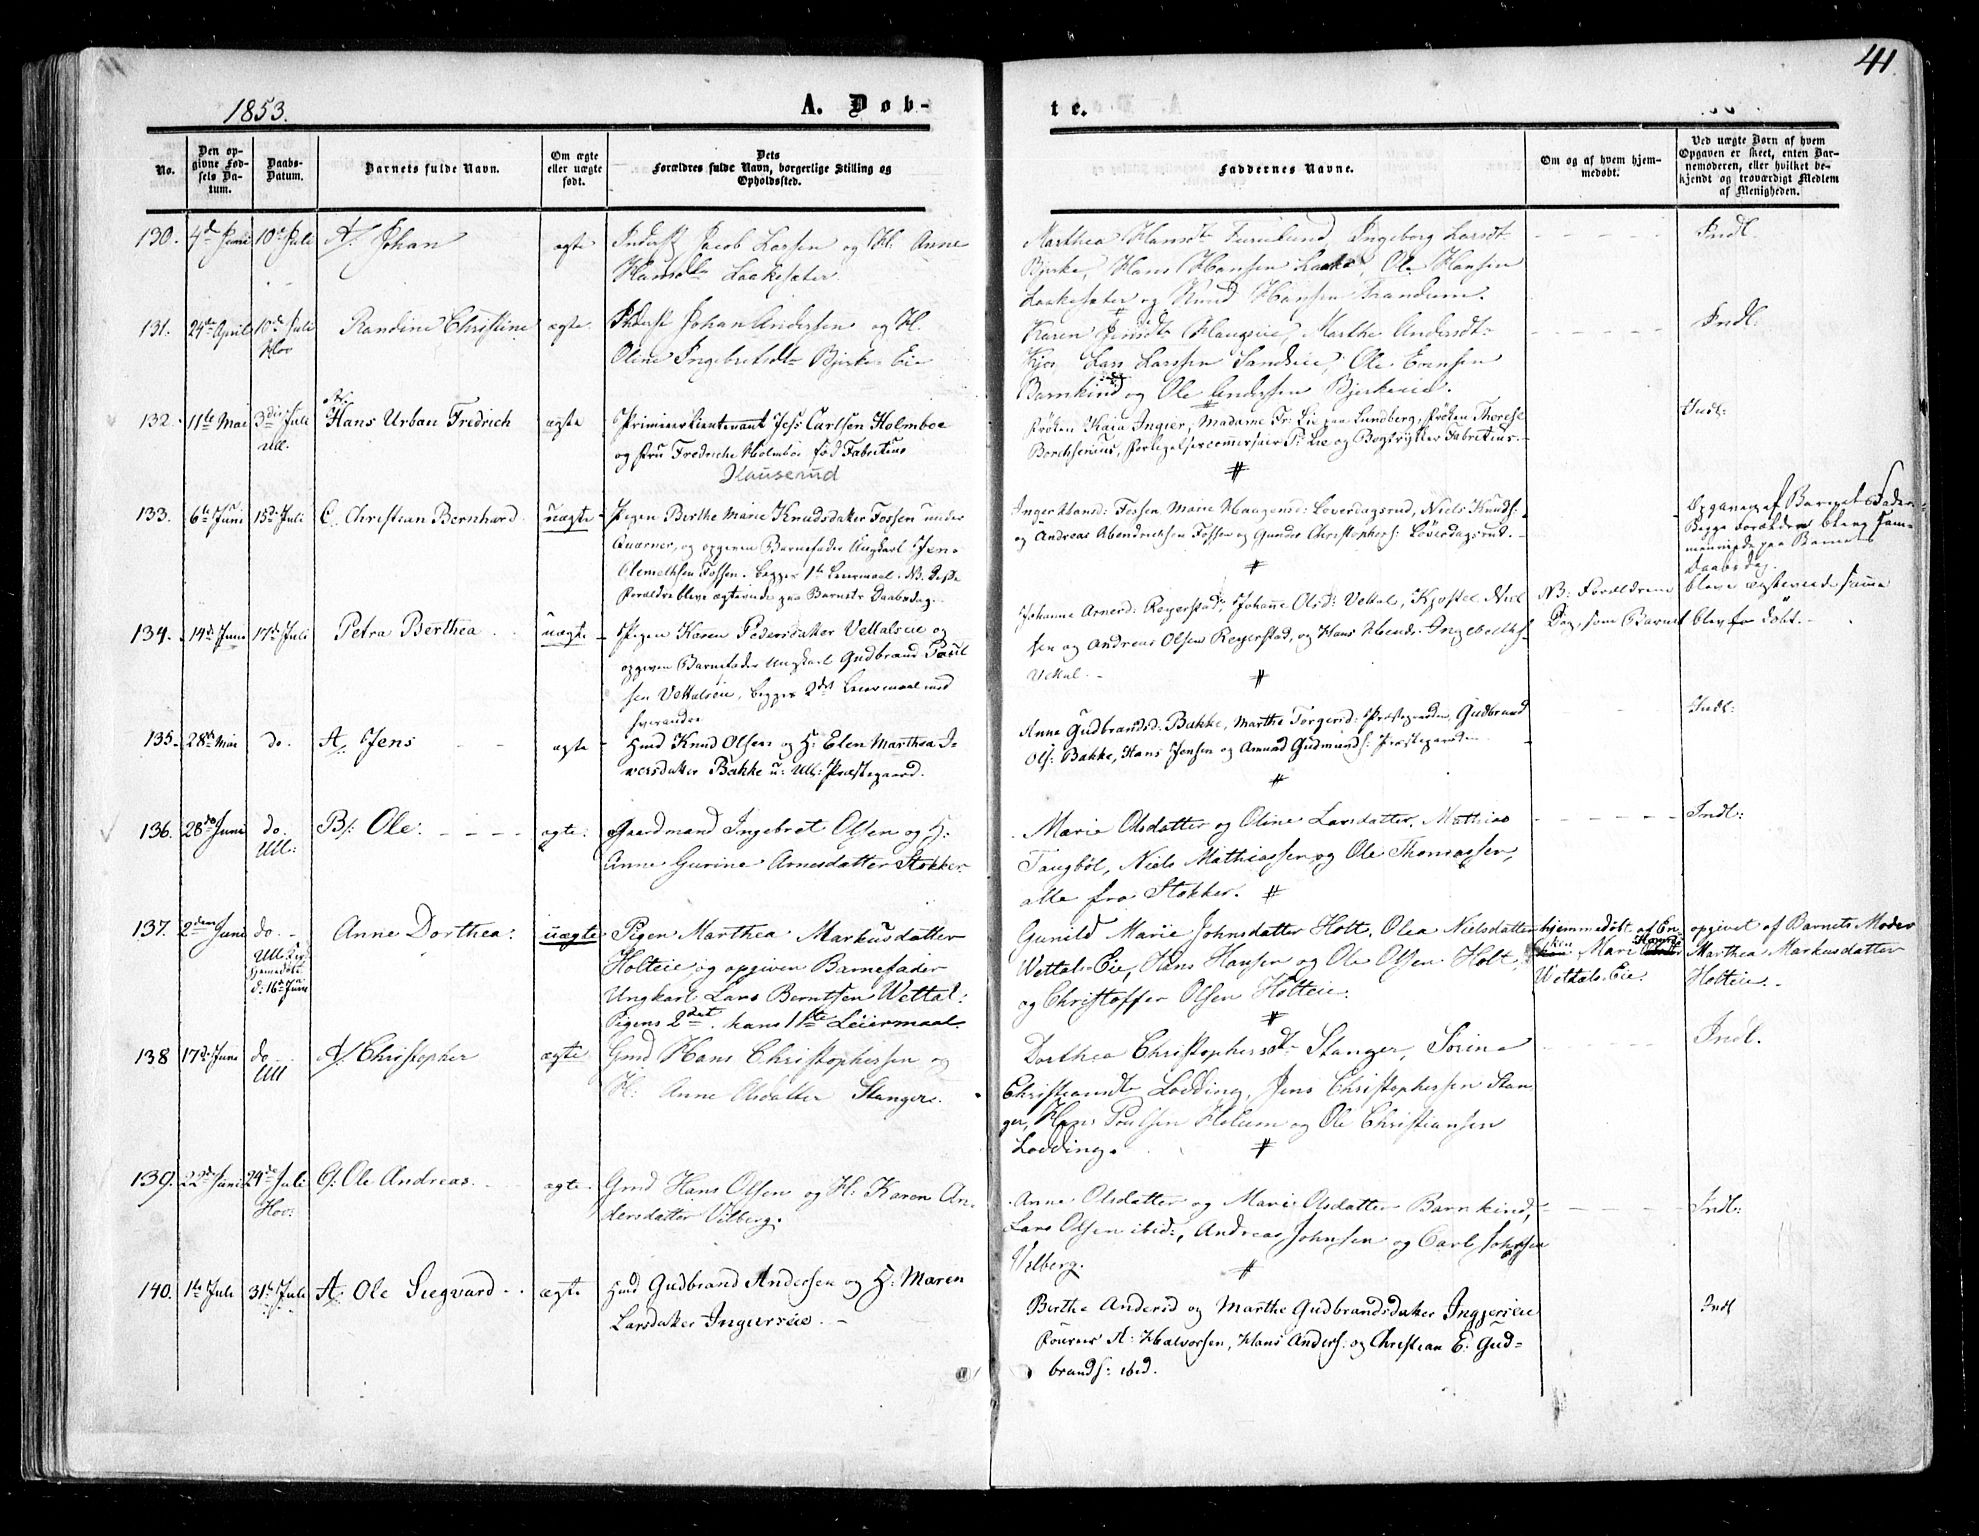 41
1853.
A. Døb-
te.
No.
Den op-
givne Fød-
sels Da-
tum.
Daabs-
Datum.
Barnets fulde Navn.
Om ægte
eller uægte
født.
Dets
Forældres fulde Navn, borgerlige Stilling og
Opholdssted.
Faddernes Navne.
Om og af hvem hjem-
medøbt.
Ved uægte Børn af hvem
Opgaven er skeet, enten Bar-
nemoderen, eller hvilket be-
kjendt og troværdigt Medlem
af Menigheden.
130. 4de Juni 10de Juli A/ Johan ægte Inderst Jacob Larsen og H: Anne
Hansdtr Laakesæter.
Marthea Hansdtr Furulund, Ingeborg Larsdtr
Bjerke, Hans Hansen Laake, Ole Hansen
Laakesæter og Knud Hansen Trandum.
Indl.
131. 24de April 10de Juli Randine Christine ægte. Inderst Johan Andersen og H.
Hov
Oline Ingebretsdtr Bjerke Eie
Karen Jensdtr Haugseie, Marthe Andersdtr
Lars Larssen Sandseie, Ole Evensen
Barnkind og Ole Anderssen Bjerkeeie.
Indl:
132. 11te Mai 3die Juli Hans Urban Fredrich ægte Primierlieutenant Jess Carlsen Holmboe
Ull.
og Fru Fredriche Holmboe fød Fabritius
Hauserud
Frøken Kaia Ingier, Madame Fr: Lie paa Lundberg, Frøken Therese
Borchsenius, P: Lie og Bogtrykker Fabritius.
#
Indl:
133. 6te Juni 15de Juli C. Christian Bernhard uægte Pigen Berthe Marie Knudsdatter Fossen under
Quærner, og opgiven Barnefader Ungkarl Jens
Clemetsen Fossen. begges 1te Leiermaal. NB. Disse
Forældre bleve ægteviede paa Barnets Daabsdag.
Inger Hansd: Fossen Marie Haagensd: Løverdagsrud, Niels Knuds:
og Andreas Hendricksen Fossen og Gunder Christophers: Løverdagsrud.
#
Opgaven af Barnets Fader.
Begge Forældre bleve sam-
menviede paa Barnets
Daabsdag.
134. 14de Juni 17de Juli Petra Berthea uægte Pigen Karen Pedersdatter Vettalseie og
opgiven Barnefader Ungkarl Gudbrand Paul
sen Vettalseie, begges 2det Leiermaal med
hverandre
Johanne Arnesd: Reyerstad, Johanne Olsd: Vettal, Kjostel Niel
sen og Andreas Olsen Reyerstad, og Hans Hends: Ingebreths:
Vettal.
#
NB: Forældrene bleve ægteviede samme
Dag, som Barnet blev døbt.
135. 28de Mai do. A/. Jens ægte Hmd Knud Olsen og H: Elen Marthea I-
versdatter Bakke u: Ull: Præstegaard.
Anne Gudbrandsd: Bakke, Marthe Torgersd: Præstegaarden, Gudbrand
Ols: Bakke, Hans Jensen og Amund Gudmunds: Præstegaarden.
#
Indl:
136. 28de Juni do. B/: Ole. ægte. Gaardmand Ingebret Olsen og H:
Ull:
Anne Gurine Arnesdatter Stokker.
Marie Olsdatter og Oline Larsdatter, Mathias
Taugbøl, Niels Mathiassen og Ole Thomassen,
alle fra Stokker. #
Indl:
137. 2den Juni do. Anne Dorthea. uægte Pigen Marthea Markusdatter
Ull: Kirke
Hjemedøbt
d: 16de Juni
Holteie og opgiven Barnefader
Ungkarl Lars Berntsen Wettal:
Pigens 2det. hans 1ste Leiermaal.
Gunild Marie Johnsdatter Holt, Olea Nielsdatter
Wettals-Eie, Hans Hansen og Ole Olsen Holt,
og Christoffer Olsen Holteie.
#
hjemmedøbt af En-
ken Mari Hans
Wettals-Eie.
opgivet af Barnets Moder
Marthea Markusdatter
Holteie.
138 17de Juni do A/: Christopher ægte Gmd Hans Christophersen og
Ull
H: Anne Olsdatter Stanger.
Dorthea Christophersdtr Stanger, Sørine
Christiansdtr Lodding, Jens Christophersen Stan
ger, Hans Poulsen Holum og Ole Christiansen
Lodding. #
Indl.
139. 22de Juni 24de Juli C/: Ole Andreas ægte Gmd Hans Olsen og H: Karen An-
Hov:
dersdatter Vilberg.
Anne Olsdatter og Marie Olsdatter Barnkind,
Lars Olsen ibid:, Andreas Johnsen og Carl Johnsen
Velberg. #
Indl:
140. 1te Juli 31te Juli A/: Ole Siegvard ægte Hmd Gudbrand Andersen og H: Maren
Larsdatter Ingierseie.
Berthe Andersd og Marthe Gudbrandsdatter Ingjerseie
A: Halvorsen, Hans Anders: og Christian E: Gud-
brands: ibid.
Indl